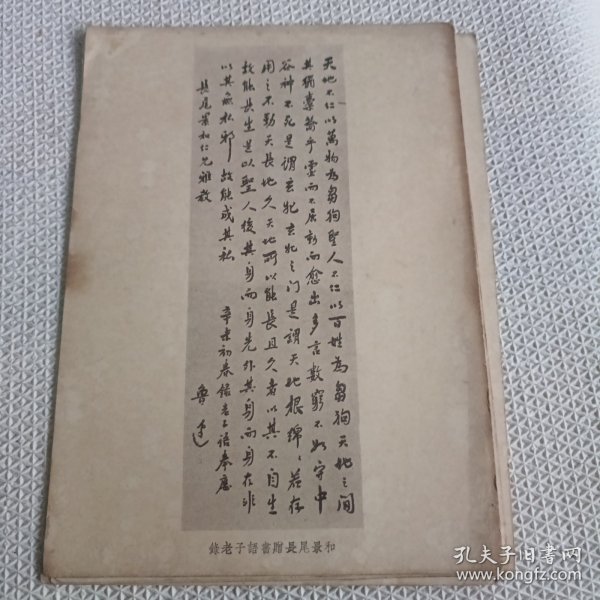 天地不仁以萬物為芻狗聖人不仁以百姓為芻狗天地之間
其猶橐籥乎虛而不屈動而愈出多言數窮不如守中
谷神不死是謂玄牝玄牝之门是謂天地根綿〻若存
用之不勤天長地久天地所以能長且久者以其不自生
故能長生是以聖人後其身而身先外其身而身存非
以其無私邪故能成其私 辛未初春錄老子語奉應
長尾景和仁兄雅教 魯迅
錄老子語書贈長尾景和
孔夫子旧书网
www.kongfz.com